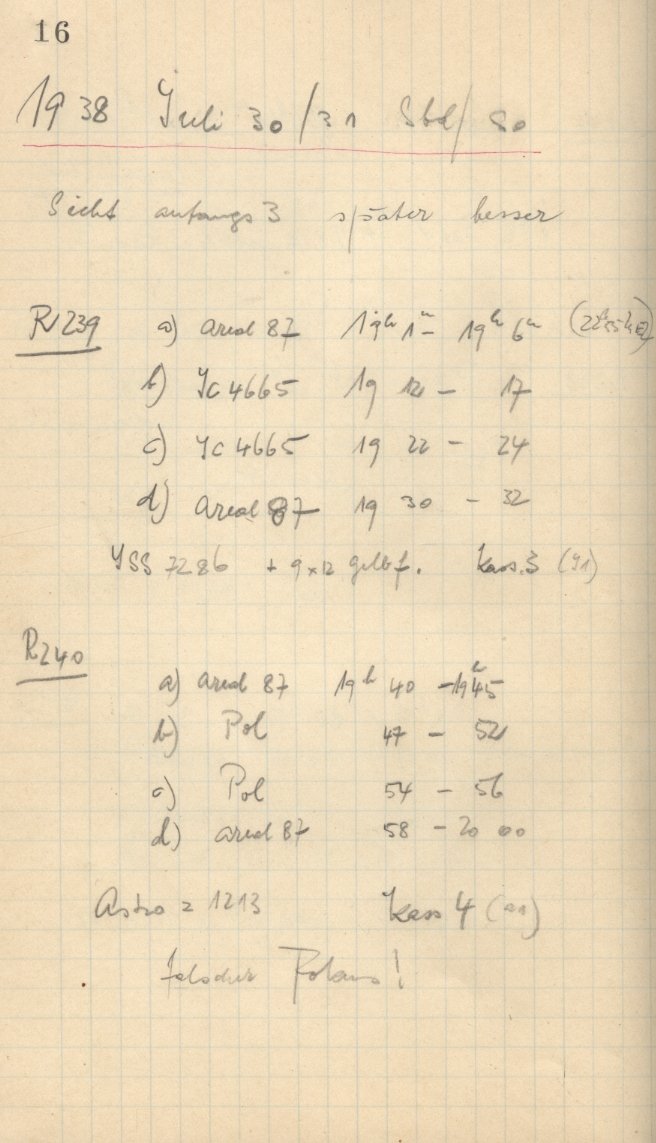 16
1938 Juli 30/31 Sbd/So
Sicht anfangs 3 später besser
R239 a) Areal 87 19h 1m - 19h 6m
b) IC 4665 19 12 - 17
c) IC 4665 19 22 - 24
d) Areal 87 19 30 - 32
ISS 7286 + 9x12 gelbf. Kass. 3
R240
a) Areal 87 19h 40 - 19h45
b) Pol 47 - 52
c) Pol 54 - 56
d) Areal 87 58 - 20 00
Astro = 1213 Kass 4
Falscher Polaris!